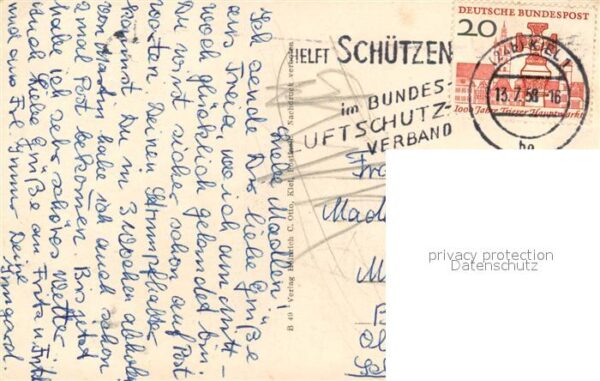 Liebe Madlen!
Ich sende Dir liebe Grüße
aus Freia, wo ich am Mitt-
woch glücklich gelandet bin.
Du wirst sicher schon auf Post
warten. Deinen Strumpfhalter
kannst Du in 3 Wochen abholen
von habe ich auch schon
2 mal Post bekommen. Bis jetzt
habe ich sehr schönes Wetter.
Auch liebe Grüße an Frita u. Fritz
und aus Fr. immer Deine
Irmgard.
B 49 Verlag Heinrich C. Otto, Kiel, Nachdruck verboten
HELFT SCHÜTZEN
im BUNDES-
LUFTSCHUTZ-
VERBAND
DEUTSCHE BUNDESPOST
20
1000 Jahre Trierer Hauptmarkt
(24b) KIEL 1
13.7.58-16
ho
Fr
Madl
M
privacy protection
Datenschutz